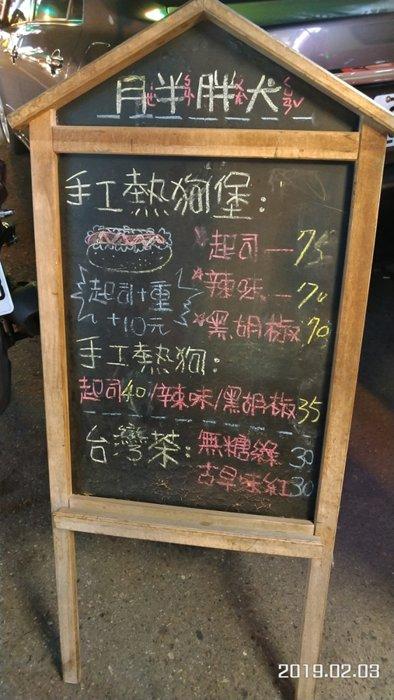 月半胖犬
手工熱狗堡:
起司—75
起司+重
+10元
*辣味—70
*黑胡椒70
手工熱狗:
起司40/辣味/黑胡椒35
台灣茶:無糖綠30
古早味紅30
2019.02.03